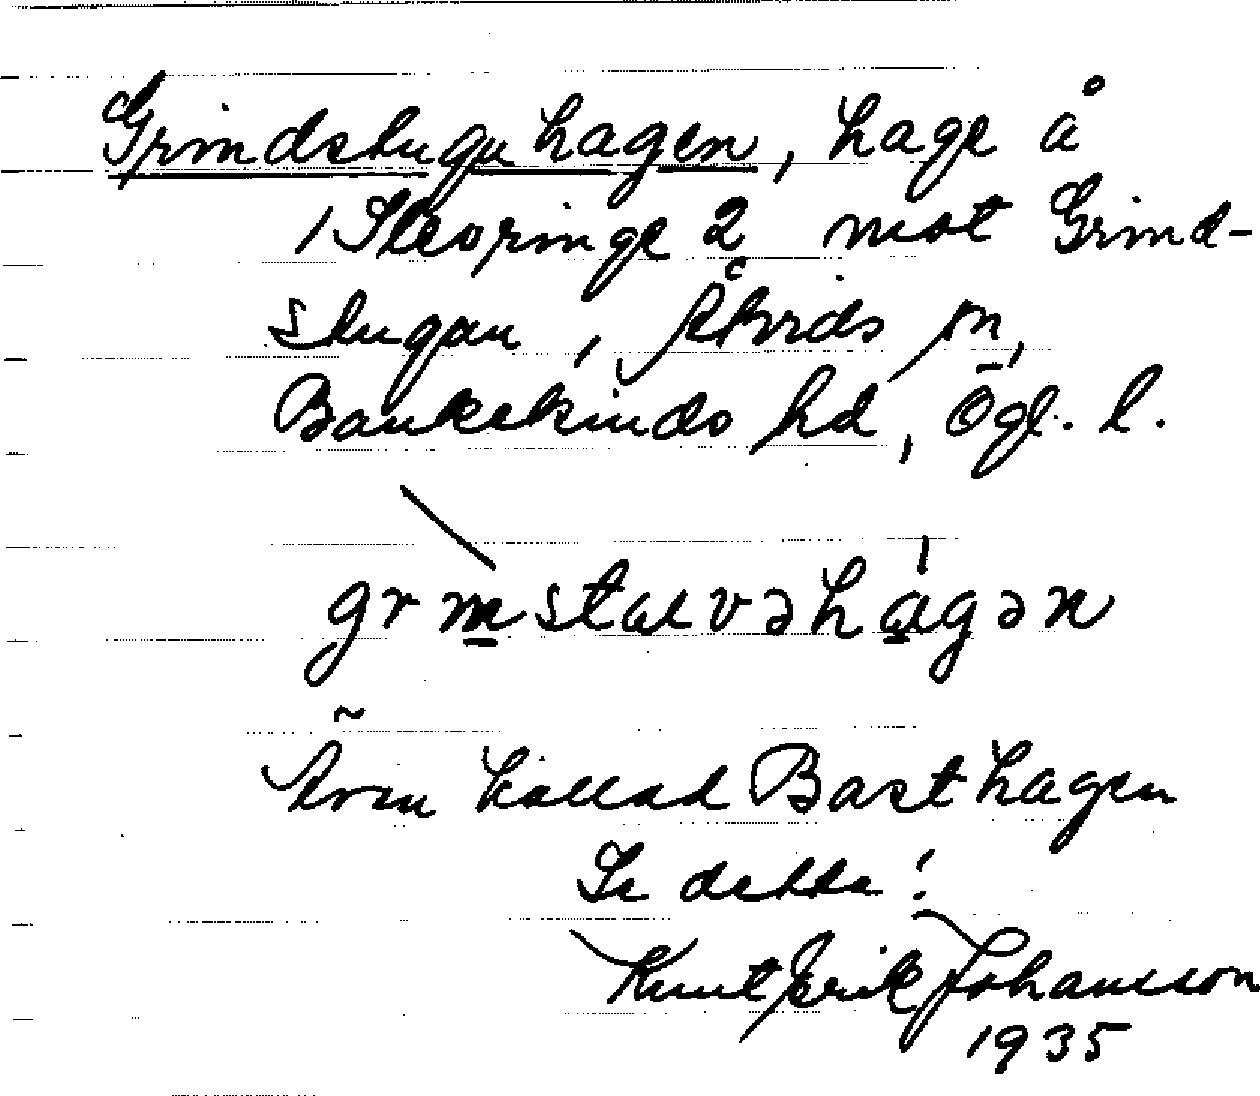 Grindstuguhagen, hage å
1 Skeoringe 2 mot Grind-
stugan, Åtvids sn,
Bankekinds hd, Ögl. l.
grinstæɯvəhágən
Även kallad Basthagen
Se detta!
Knut Erik Johansson
1935